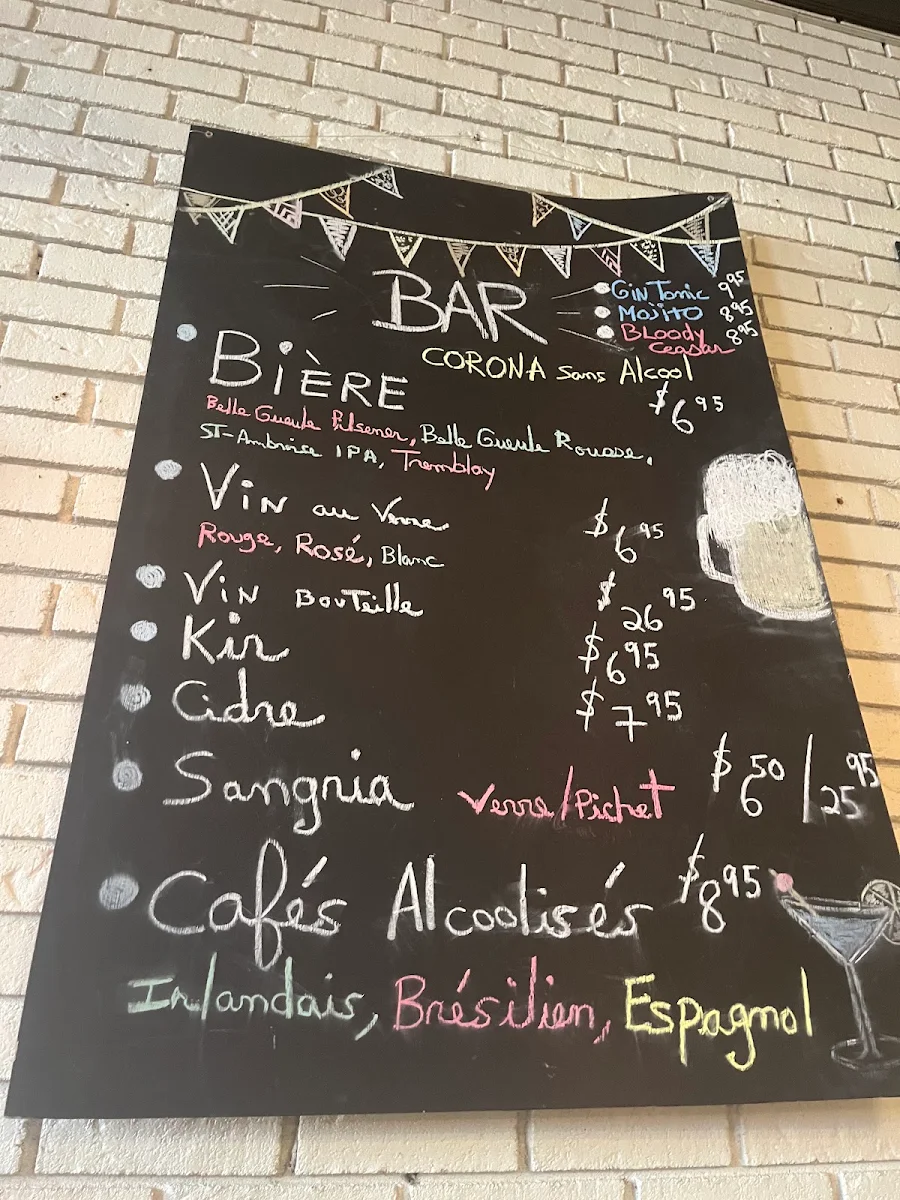 BAR
Gin Tonic 9 95
Mojito 8 95
Bloody 8 95
Ceasar
BIÈRE
CORONA Sans Alcool
$6 95
Belle Gueule Pilsener, Belle Gueule Rousse,
ST-Ambroise IPA, Tremblay
Vin au Verre $6 95
Rouge, Rosé, Blanc
Vin Bouteille $26 95
Kir $6 95
Cidre $7 95
Sangria Verre/Pichet $6 50 / 25 95
Cafés Alcoolisés $8 95
Irlandais, Brésilien, Espagnol